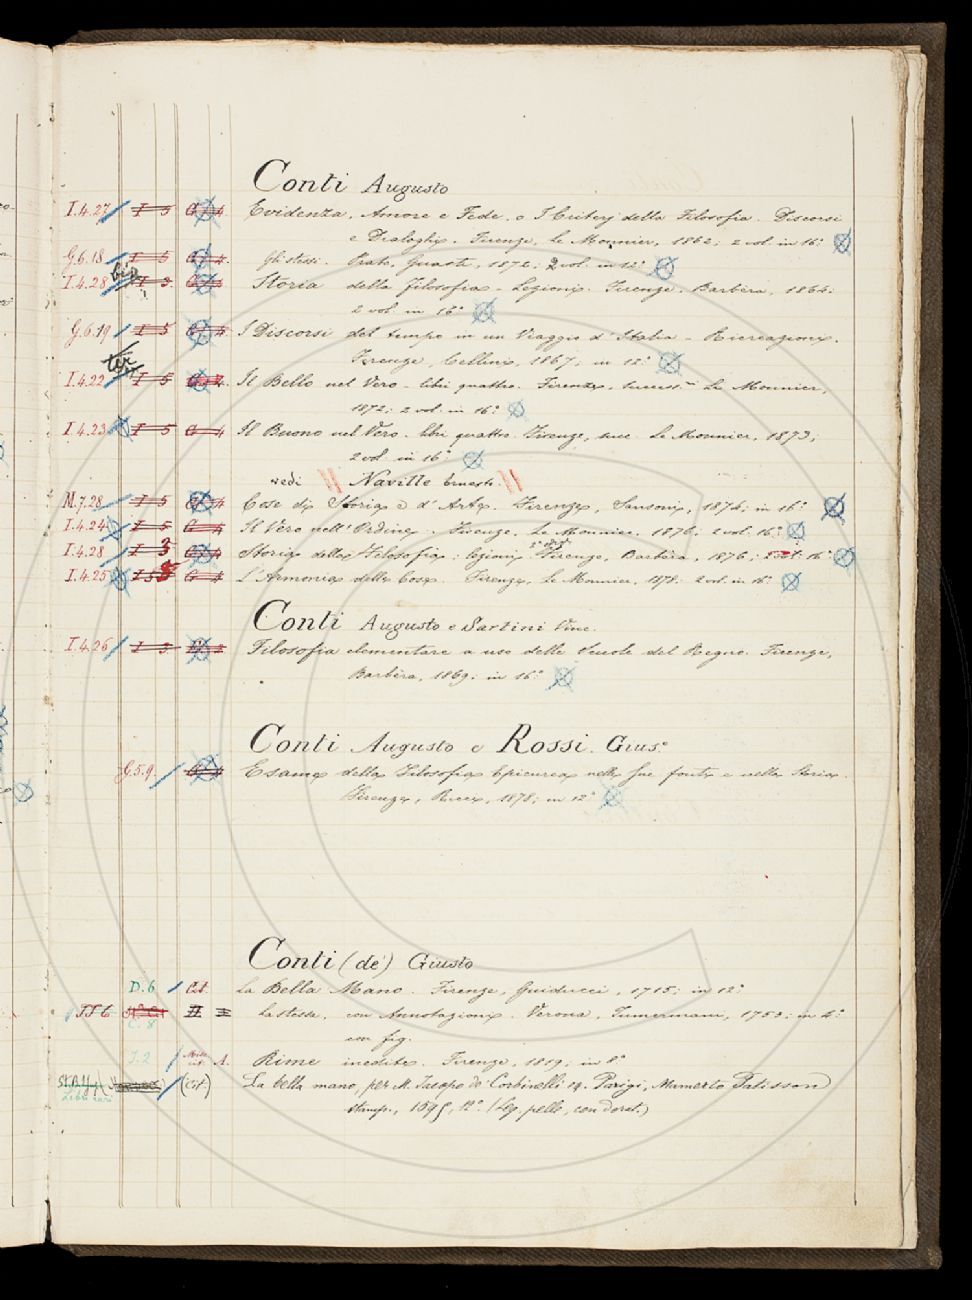 Conti Augusto
I.4.27 I 5 Evidenza, Amore e Fede, o I Criterj della Filosofia. Discorsi
e Dialoghi. Firenze, Le Monnier, 1862; 2 vol. in 16°
G.6.18 I 5 Gli stessi. Prato, Guasti, 1872; 2 vol. in 12°
I.4.28 bis I 3. Storia della Filosofia - Lezioni. Firenze, Barbèra, 1864;
2 vol. in 16°
G.6.19 I 5 I Discorsi del tempo in un Viaggio d'Italia - Ricreazioni.
Firenze, Cellini, 1867, in 12°
ter
I.4.22 I 5 Il Bello nel Vero - libri quattro. Firenze, success. Le Monnier,
1872; 2 vol. in 16°
I.4.23 I 5 Il Buono nel Vero. libri quattro. Firenze, succ. Le Monnier, 1873;
2 vol. in 16°
vedi Naville Ernesto.
M.7.28 I 5 Cose di Storia e d'Arte. Firenze, Sansoni, 1874; in 16°
I.4.24 I 5 Il Vero nell'Ordine. Firenze, Le Monnier. 1876, 2 vol. 16°
I.4.28 I 3 Storia della Filosofia: lezioni Firenze, Barbèra, 1876; 16°
I.4.25 I 5 L'Armonia delle Cose. Firenze, Le Monnier, 1878: 2 vol. in 16°
Conti Augusto e Sartini Vinc.
I.4.26 I 3. Filosofia elementare a uso delle Scuole del Regno. Firenze,
Barbèra, 1869. in 16°
Conti Augusto e Rossi. Gius.e
G.5.9. Esame della Filosofia Epicurea nelle sue fonti e nella Storia.
Firenze, 1878; in 12°
Conti (de') Giusto
D.6 Cit. La Bella Mano. Firenze, Guiducci, 1715; in 12°
TT 6 C. 8 II La stessa, con Annotazioni. Verona, Tumermani, 1753; in 4°
con fig.
I.2 A. Rime inedite. Firenze, 1819; in 8°
Libri rari (Cit) La bella mano, per M. Iacopo de' Corbinelli. Parigi, Mamerto Patisson
stamp., 1595, 12°. (Leg. pelle, con dorat.)